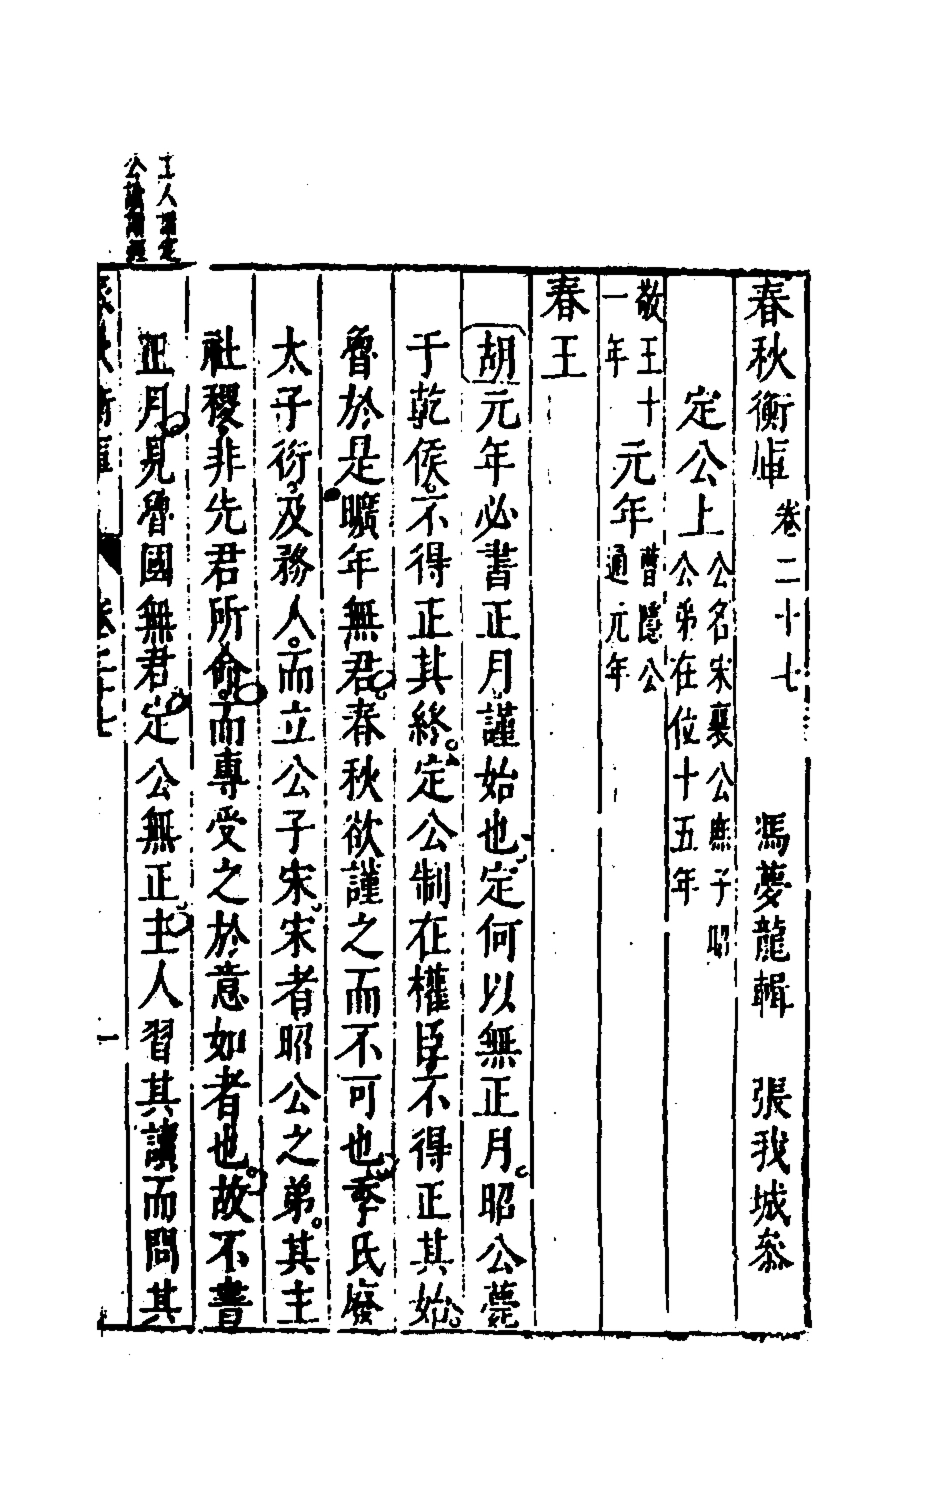 春秋衡庫 卷二十七 馮夢龍輯 張我城叅
定公上 公名宋襄公庶子昭
公弟在位十五年
敬王十
一年
元年 曹隱公
通元年
春王
胡元年必書正月謹始也定何以無正月昭公薨
于乾侯不得正其終定公制在權臣不得正其始
魯於是曠年無君春秋欲謹之而不可也季氏廢
太子衍及務人而立公子宋宋者昭公之弟其主
社稷非先君所命而專受之於意如者也故不書
正月見魯國無君定公無正主人習其讀而問其
主人謂定
公
春秋衡庫 卷二十七 一